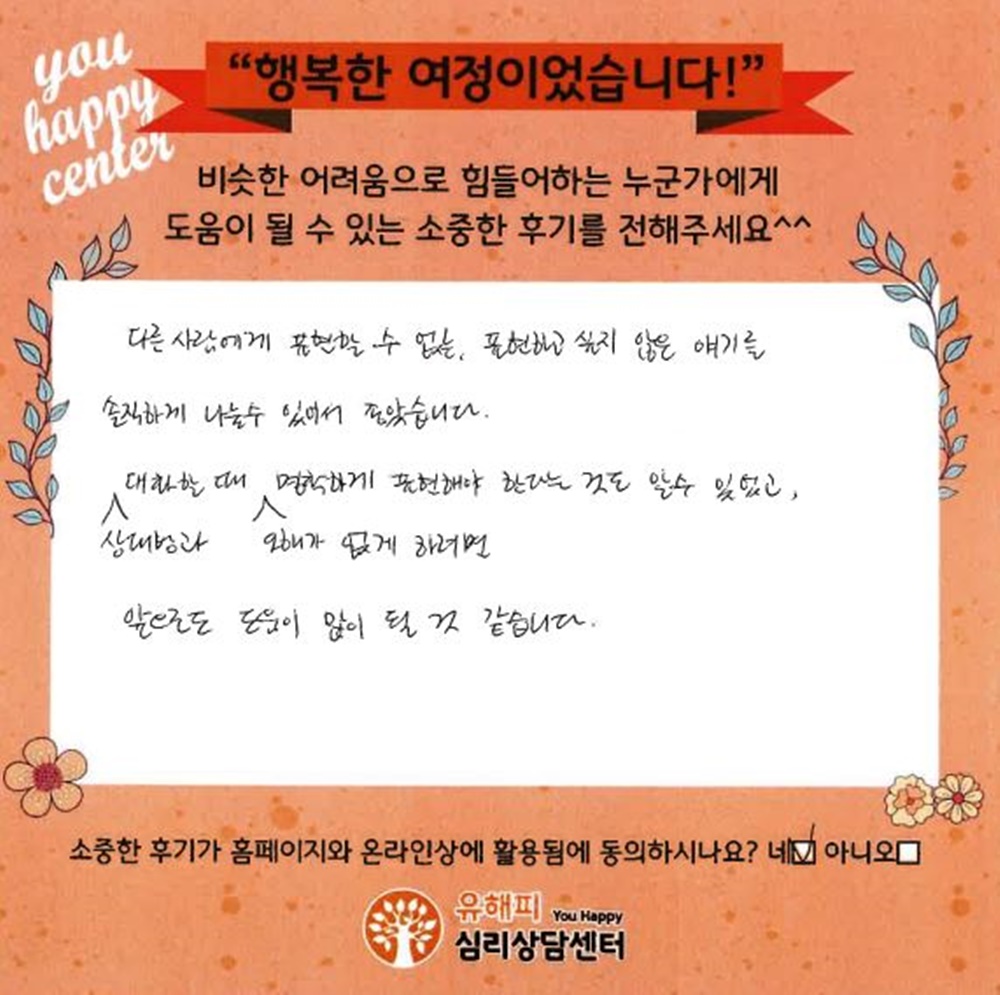 you
happy
center
“행복한 여정이었습니다!”
비슷한 어려움으로 힘들어하는 누군가에게
도움이 될 수 있는 소중한 후기를 전해주세요^^
다른 사람에게 표현할 수 없는, 표현하고 싶지 않은 얘기를
솔직하게 나눌수 있어서 좋았습니다.
대화할 때 명확하게 표현해야 한다는 것도 알수 있었고,
상대방과 오해가 없게 하려면
앞으로도 도움이 많이 될 것 같습니다.
소중한 후기가 홈페이지와 온라인상에 활용됨에 동의하시나요? 네☑ 아니오☐
유해피 You Happy
심리상담센터